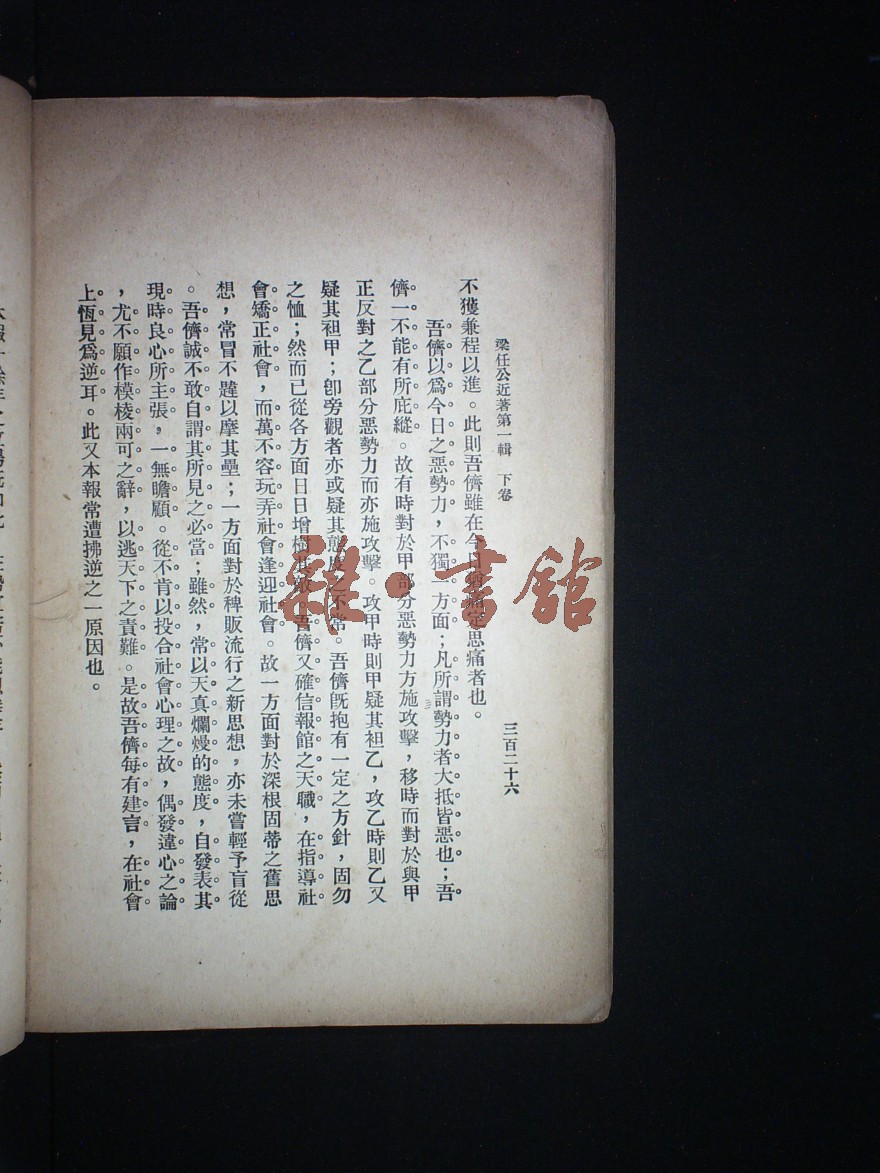 梁任公近著第一輯　下卷
三百二十六
不獲兼程以進。此則吾儕雖在今日猶痛定思痛者也。
吾儕以爲今日之惡勢力，不獨一方面；凡所謂勢力者大抵皆惡也；吾
儕一不能有所庇縱。故有時對於甲部分惡勢力方施攻擊，移時而對於與甲
正反對之乙部分惡勢力而亦施攻擊。攻甲時則甲疑其袒乙，攻乙時則乙又
疑其袒甲；卽旁觀者亦或疑其態度之不常。吾儕旣抱有一定之方針，固勿
之恤；然而已從各方面日日增樹其敵。吾儕又確信報館之天職，在指導社
會矯正社會，而萬不容玩弄社會逢迎社會。故一方面對於深根固蒂之舊思
想，常冒不韙以摩其壘；一方面對於稗販流行之新思想，亦未嘗輕予盲從
。吾儕誠不敢自謂其所見之必當；雖然，常以天真爛熳的態度，自發表其
現時良心所主張，一無瞻顧。從不肯以投合社會心理之故，偶發違心之論
，尤不願作模棱兩可之辭，以逃天下之責難。是故吾儕每有建言，在社會
上恆見爲逆耳。此又本報常遭拂逆之一原因也。
雜·書館